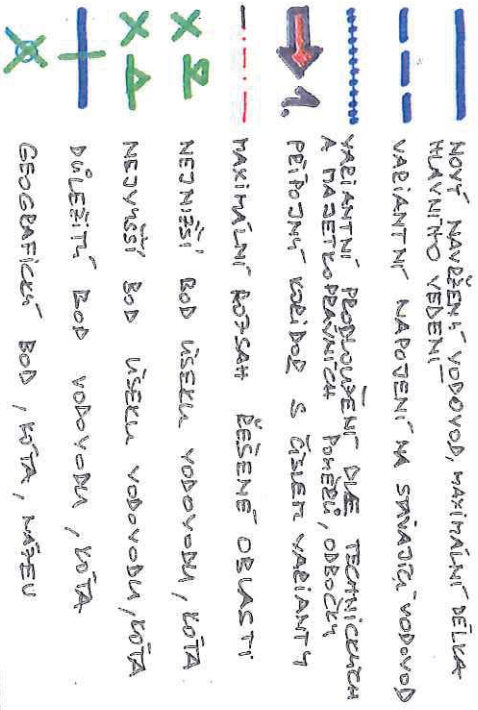 NOVÝ NAVRŽENÝ VODOVOD, MAXIMÁLNÍ DÉLKA
HLAVNÍHO VEDENÍ
VARIANTNÍ NAPOJENÍ NA STÁVAJÍCÍ VODOVOD
VARIANTNÍ PRODLOUŽENÍ DLE TECHNICKÝCH
A MAJETKOPRÁVNÍCH POMĚRŮ, ODBOČKY
1. PŘÍPOJNÝ KORIDOR S ČÍSLEM VARIANTY
MAXIMÁLNÍ ROZSAH ŘEŠENÉ OBLASTI
NEJNIŽŠÍ BOD ÚSEKU VODOVODU, KÓTA
NEJVYŠŠÍ BOD ÚSEKU VODOVODU, KÓTA
DŮLEŽITÝ BOD VODOVODU, KÓTA
GEOGRAFICKÝ BOD, KÓTA, NÁZEV